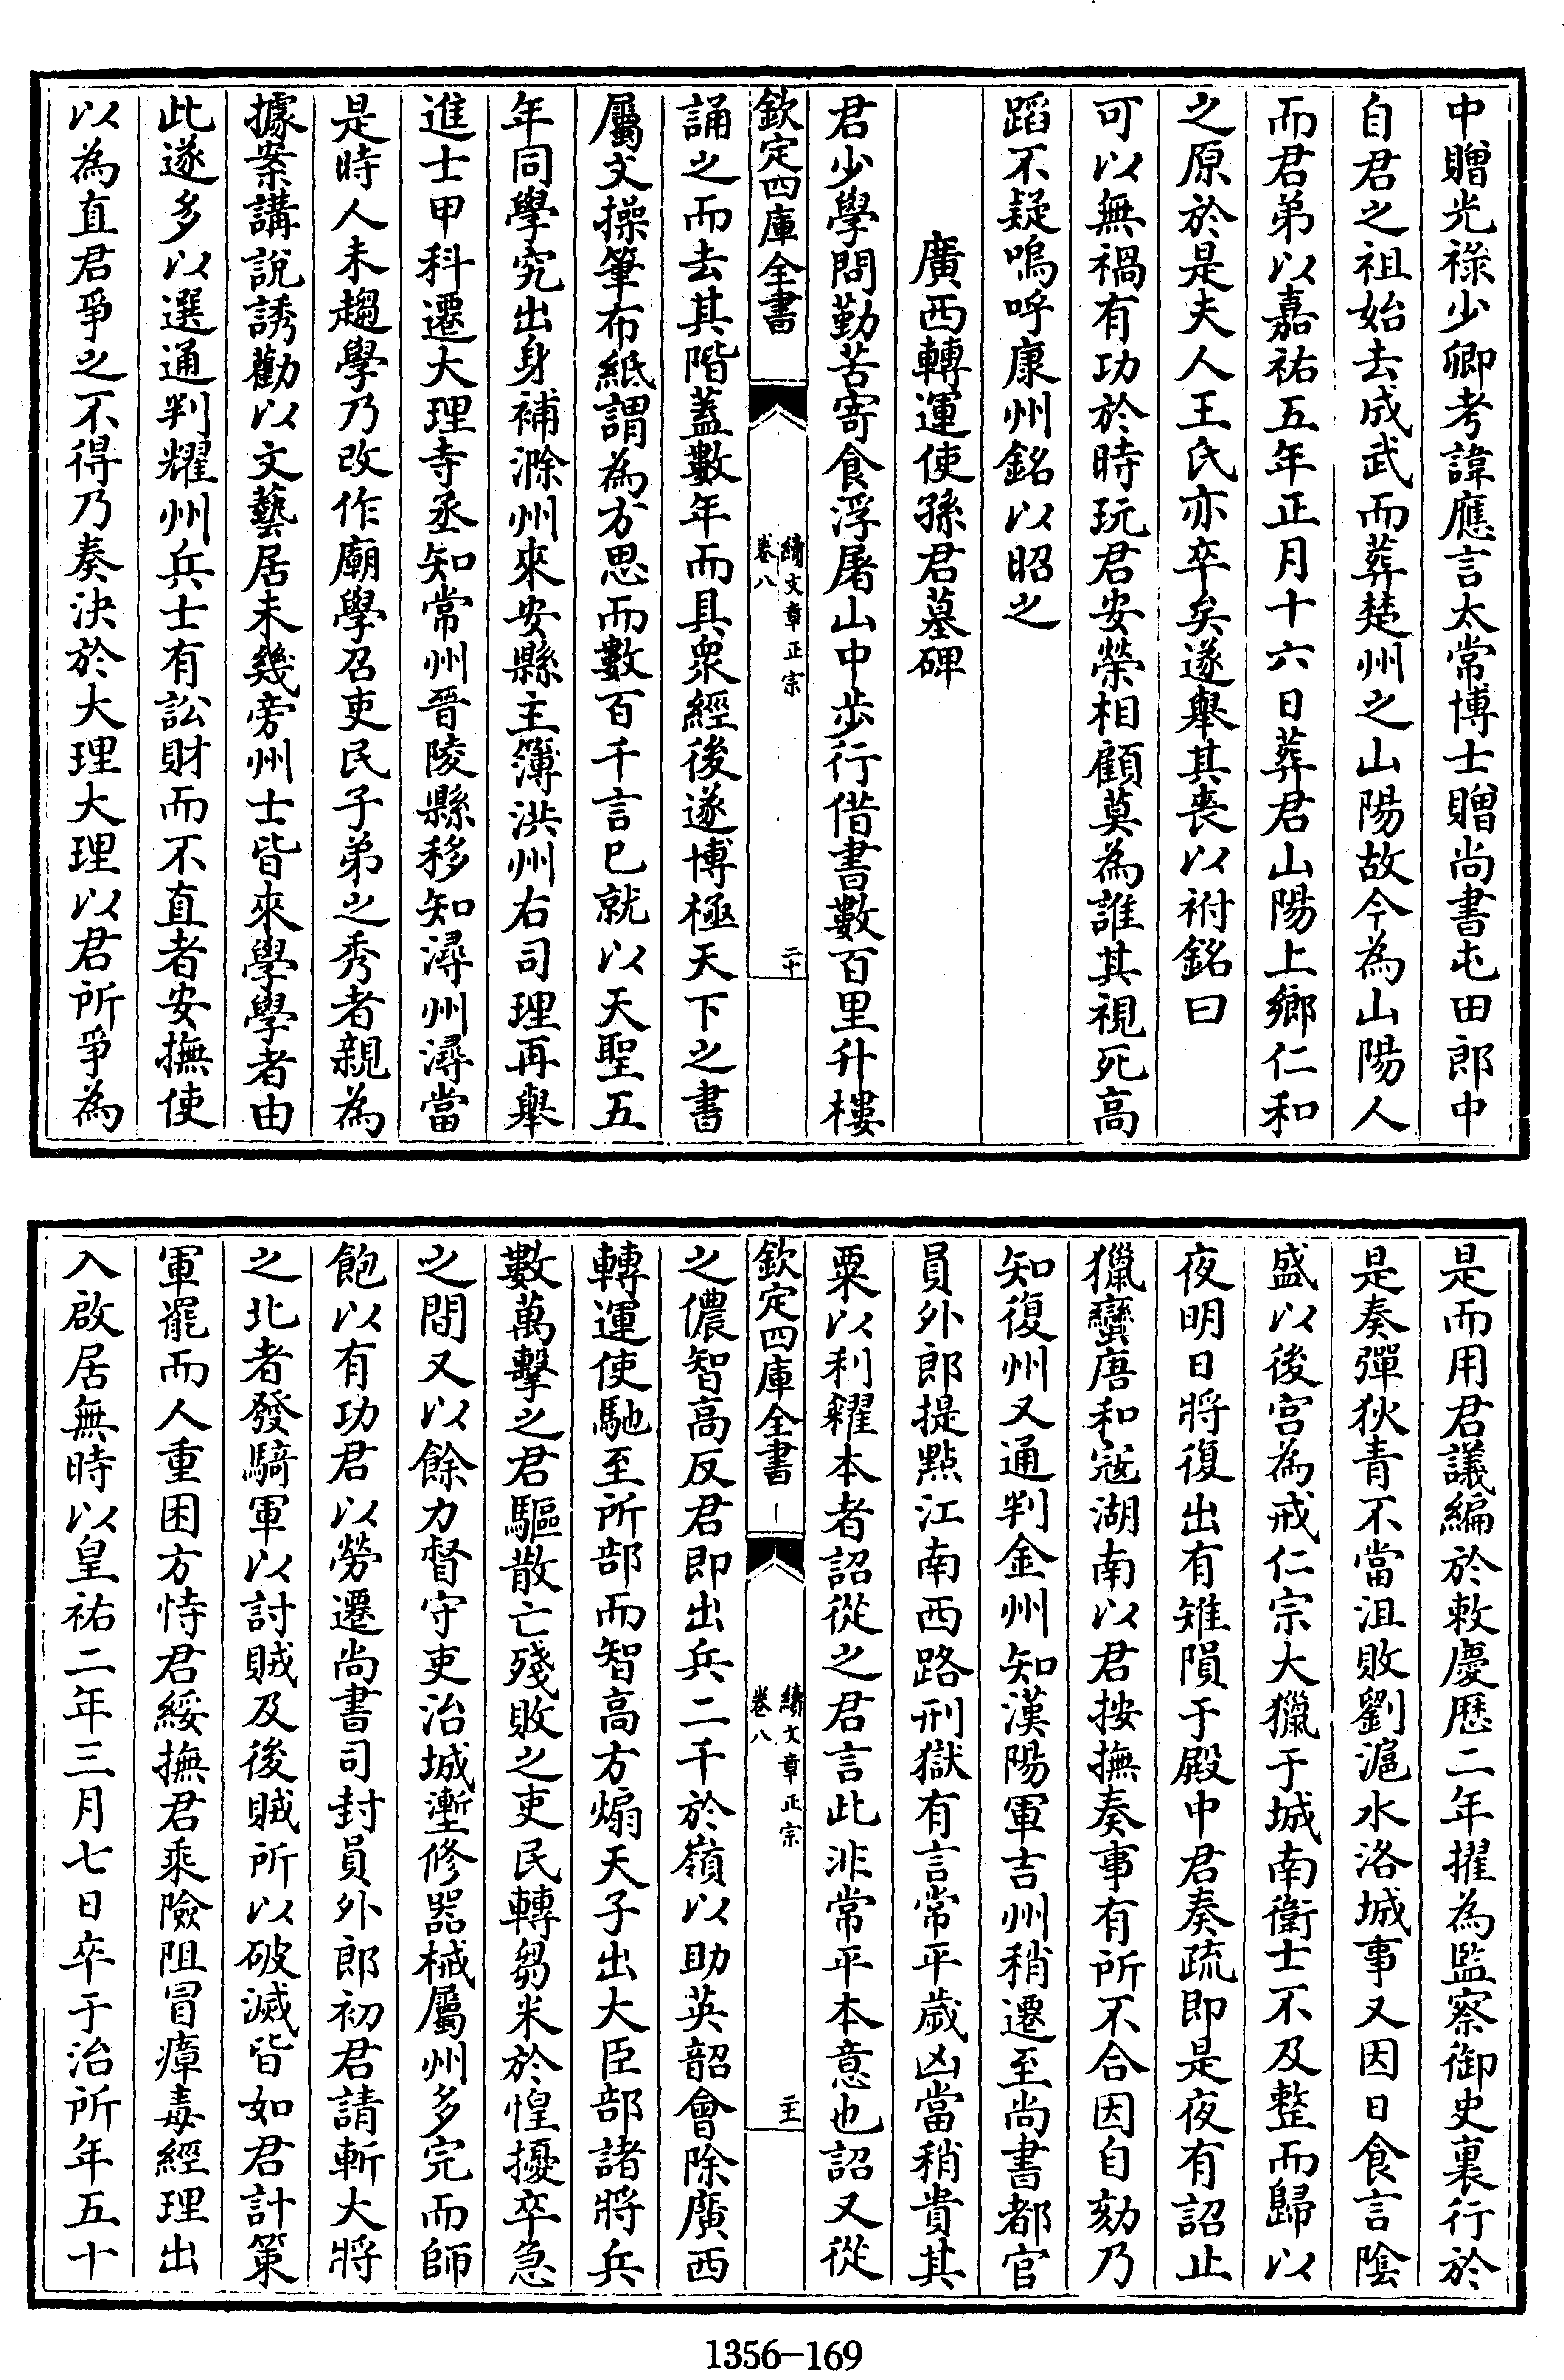 中贈光祿少卿考諱應言太常博士贈尚書屯田郎中
自君之祖始去成武而葬楚州之山陽故今為山陽人
而君弟以嘉祐五年正月十六日葬君山陽上鄉仁和
之原於是夫人王氏亦卒矣遂舉其喪以祔銘曰
可以無禍有功於時玩君安榮相顧莫為誰其視死高
蹈不疑嗚呼康州銘以昭之
廣西轉運使孫君墓碑
君少學問勤苦寄食浮屠山中步行借書數百里升樓
欽定四庫全書
續文章正宗
卷八
二十
誦之而去其階蓋數年而具衆經後遂博極天下之書
屬文操筆布紙謂為方思而數百千言已就以天聖五
年同學究出身補滁州來安縣主簿洪州右司理再舉
進士甲科遷大理寺丞知常州晉陵縣移知潯州潯當
是時人未趨學乃改作廟學召吏民子弟之秀者親為
據案講說誘勸以文藝居未幾旁州士皆來學學者由
此遂多以選通判耀州兵士有訟財而不直者安撫使
以為直君爭之不得乃奏決於大理大理以君所爭為
是而用君議編於敕慶歷二年擢為監察御史裏行於
是奏彈狄青不當沮敗劉滬水洛城事又因日食言陰
盛以後宮為戒仁宗大獵于城南衛士不及整而歸以
夜明日將復出有雉隕于殿中君奏疏即是夜有詔止
獵蠻唐和寇湖南以君按撫奏事有所不合因自劾乃
知復州又通判金州知漢陽軍吉州稍遷至尚書都官
員外郎提點江南西路刑獄有言常平歲凶當稍貴其
粟以利糴本者詔從之君言此非常平本意也詔又從
欽定四庫全書
續文章正宗
卷八
二十一
之儂智高反君即出兵二千於嶺以助英韶會除廣西
轉運使馳至所部而智高方煽天子出大臣部諸將兵
數萬擊之君驅散亡殘敗之吏民轉芻米於惶擾卒急
之間又以餘力督守吏治城壍修器械屬州多完而師
飽以有功君以勞遷尚書司封員外郎初君請斬大將
之北者發騎軍以討賊及後賊所以破滅皆如君計策
軍罷而人重困方恃君綏撫君乘險阻冒瘴毒經理出
入啟居無時以皇祐二年三月七日卒于治所年五十
1356—169